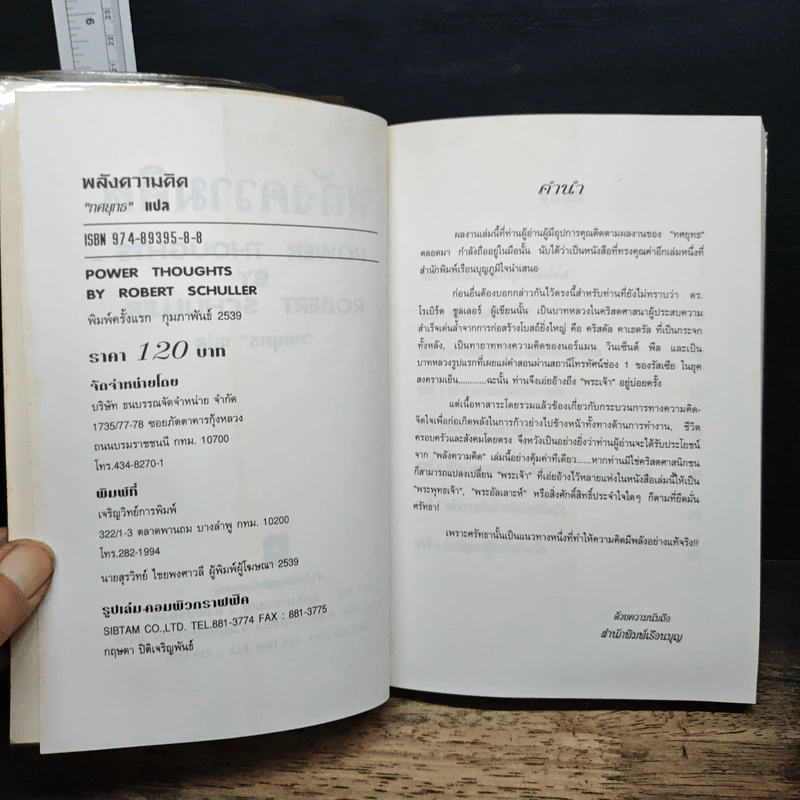 พลังความคิด
"ทศยุทธ" แปล
ISBN 974-89395-8-8
POWER THOUGHTS
BY ROBERT SCHULLER
พิมพ์ครั้งแรก กุมภาพันธ์ 2539
ราคา 120 บาท
จัดจำหน่ายโดย
บริษัท ธนบรรณจัดจำหน่าย จำกัด
1735/77-78 ซอยภัตตาคารกุ้งหลวง
ถนนบรมราชชนนี กทม. 10700
โทร.434-8270-1
พิมพ์ที่
เจริญวิทย์การพิมพ์
322/1-3 ตลาดพานถม บางลำพู กทม. 10200
โทร.282-1994
นายสุรวิทย์ ไชยพงศาวลี ผู้พิมพ์ผู้โฆษณา 2539
รูปเล่ม-คอมพิวกราฟฟิค
SIBTAM CO.,LTD. TEL.881-3774 FAX : 881-3775
กฤษดา ปิติเจริญพันธ์
คำนำ
ผลงานเล่มนี้ที่ท่านผู้อ่านผู้มีอุปการคุณติดตามผลงานของ "ทศยุทธ"
ตลอดมา กำลังถืออยู่ในมือนั้น นับได้ว่าเป็นหนังสือที่ทรงคุณค่าอีกเล่มหนึ่งที่
สำนักพิมพ์เรือนบุญภูมิใจนำเสนอ
ก่อนอื่นต้องบอกกล่าวกันไว้ตรงนี้สำหรับท่านที่ยังไม่ทราบว่า ดร.
โรเบิร์ต ชูลเลอร์ ผู้เขียนนั้น เป็นบาทหลวงในคริสตศาสนาผู้ประสบความ
สำเร็จเด่นล้ำจากการก่อสร้างโบสถ์ยิ่งใหญ่ คือ คริสตัล คาเธดรัล ที่เป็นกระจก
ทั้งหลัง, เป็นทายาททางความคิดของนอร์แมน วินเซ็นต์ พีล และเป็น
บาทหลวงรูปแรกที่เผยแผ่คำสอนผ่านสถานีโทรทัศน์ช่อง 1 ของรัสเซีย ในยุค
สงครามเย็น...........ฉะนั้น ท่านจึงเอ่ยอ้างถึง "พระเจ้า" อยู่บ่อยครั้ง
แต่เนื้อหาสาระโดยรวมแล้วข้องเกี่ยวกับกระบวนการทางความคิด-
จิตใจเพื่อก่อเกิดพลังในการก้าวย่างไปข้างหน้าทั้งทางด้านการทำงาน, ชีวิต
ครอบครัวและสังคมโดยตรง จึงหวังเป็นอย่างยิ่งว่าท่านผู้อ่านจะได้รับประโยชน์
จาก "พลังความคิด" เล่มนี้อย่างคุ้มค่าทีเดียว......หากท่านมิใช่คริสตศาสนิกชน
ก็สามารถแปลงเปลี่ยน "พระเจ้า" ที่เอ่ยอ้างไว้หลายแห่งในหนังสือเล่มนี้ให้เป็น
"พระพุทธเจ้า", "พระอัลเลาะห์" หรือสิ่งศักดิ์สิทธิ์ประจำใจใดๆ ก็ตามที่ยึดมั่น
ศรัทธา!
เพราะศรัทธานั้นเป็นแนวทางหนึ่งที่ทำให้ความคิดมีพลังอย่างแท้จริง!!
ด้วยความนับถือ
สำนักพิมพ์เรือนบุญ